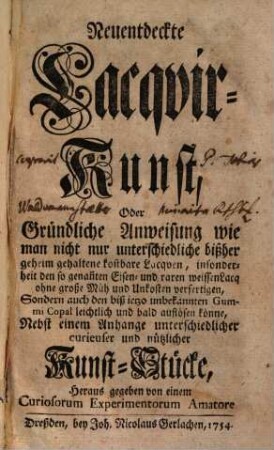 Neuentdeckte
Lacqvir-
Kunst,
Oder
Gründliche Anweisung wie
man nicht nur unterschiedliche bißher
geheim gehaltene kostbare Lacqven, insonder-
heit den so genañten Eisen- und raren weissen Lacq
ohne große Müh und Unkosten verfertigen,
Sondern auch den biß ietzo unbekannten Gum-
mi Copal leichtlich und bald auflösen könne,
Nebst einem Anhange unterschiedlicher
curieuser und nützlicher
Kunst-Stücke,
Heraus gegeben von einem
Curiosorum Experimentorum Amatore
Dreßden, bey Joh. Nicolaus Gerlachen, 1754.